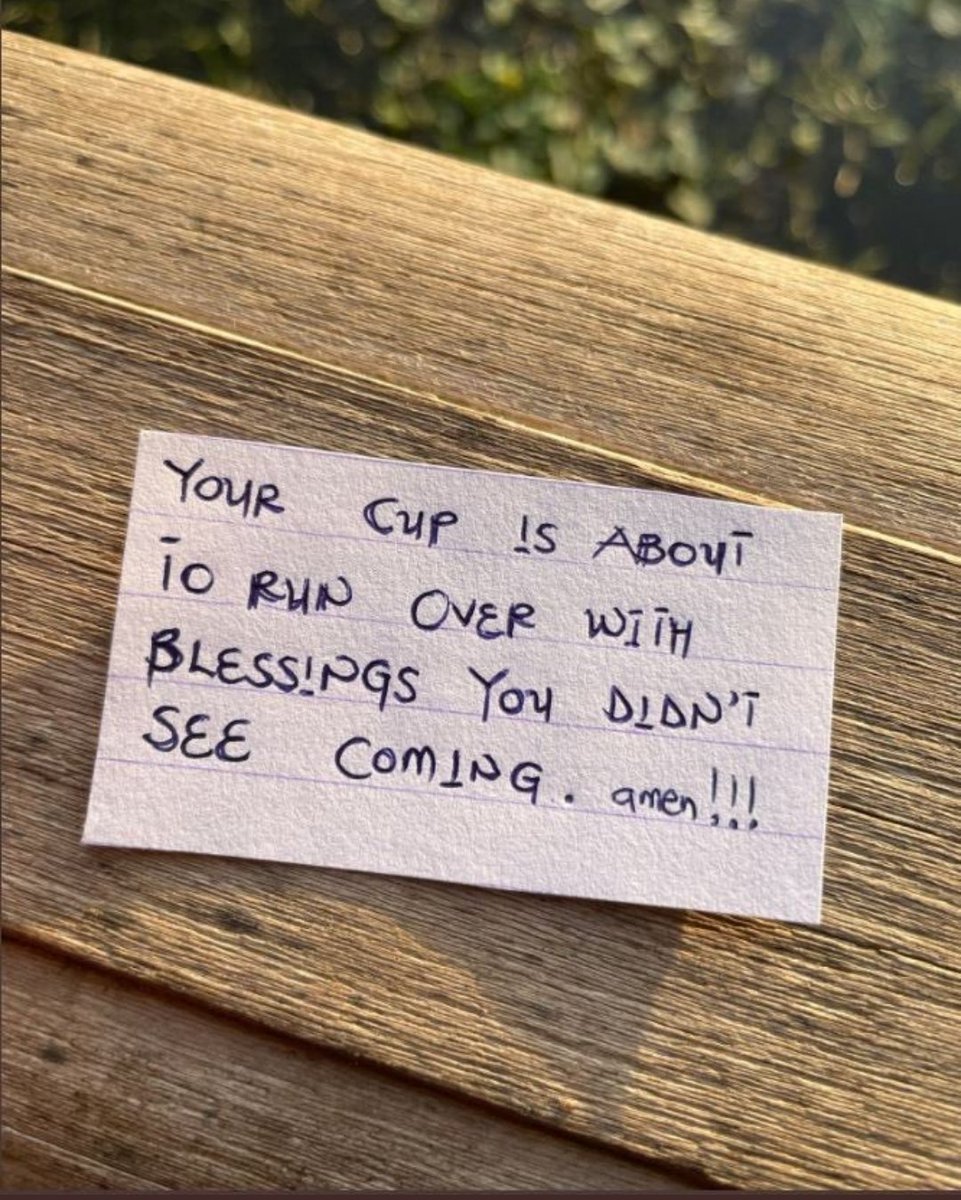 YOUR CUP IS ABOUT
TO RUN OVER WITH
BLESSINGS YOU DIDN'T
SEE COMING. amen!!!